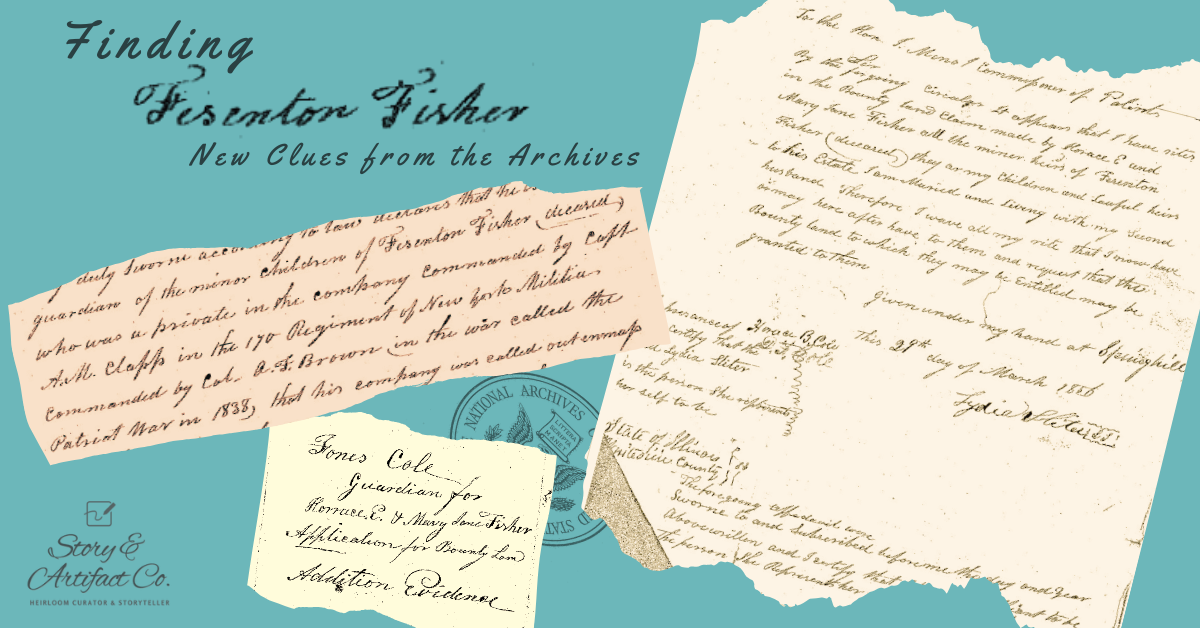 Finding
Fesenton Fisher
New Clues from the Archives
duly sworne according to law declares that he is
guardian of the minor children of Fesenton Fisher (deceired)
who was a private in the company commanded by Capt
A.M. Clapp in the 170 Regiment of New York Militia
commanded by Col. A.F. Brown in the war called the
Patriot War in 1838, that his company was called out
NATIONAL ARCHIVES
LITTERA
SCRIPTA
MANET
Fones Cole
Guardian for
Horrace. E. & Mary Jane Fisher
Application for Bounty Land
Addition Evidence
Story &
Artifact Co.
HEIRLOOM CURATOR & STORYTELLER
To the Hon. Commissioner of Patents
By the forgoing Circular it appears that I have rites
in the Bounty land Claim made by Horace E and
Mary Jane Fisher all the miner heirs of Fesenton
Fisher (deceired) they ar my Children and Lawful heirs
to his Estate I am Maried and Living with my Second
husband. Therefore, I wave all my rite that I now have
or may have after have to them and request that the
Bounty land to which they may be Entitled may be
granted to them
Given under my hand at Springhill
This 29th day of March 1856
Lydia Sliter
Horace B. Cole
certify that the
Lydia Sliter
is the person She represents
her self to be
State of Illinois
Whiteside County
The foregoing affidavit were
Sworne to and Subscribed before me the day and year
Above written and I certify that
The person She Represents